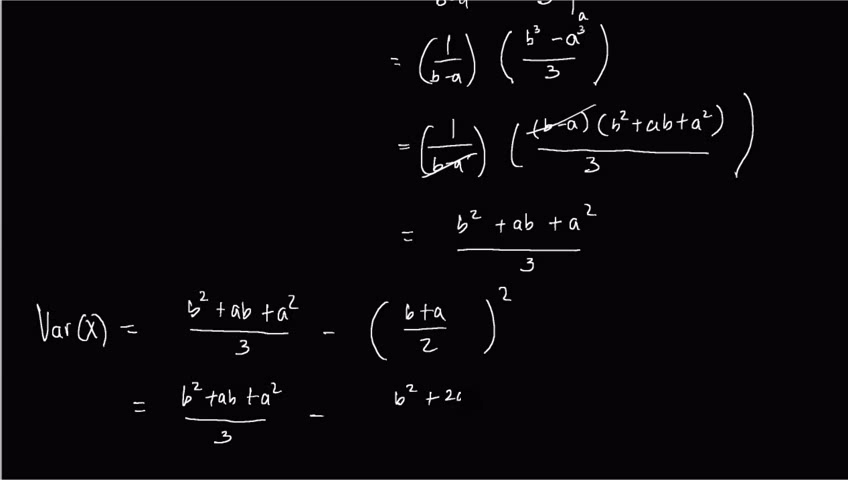 = (1/(b-a)) ((b³ - a³)/3)
= (1/(b-a)) ((b-a)(b² + ab + a²)/3)
= (b² + ab + a²)/3
Var(X) = (b² + ab + a²)/3 - ((b+a)/2)²
= (b² + ab + a²)/3 - b² + 2a